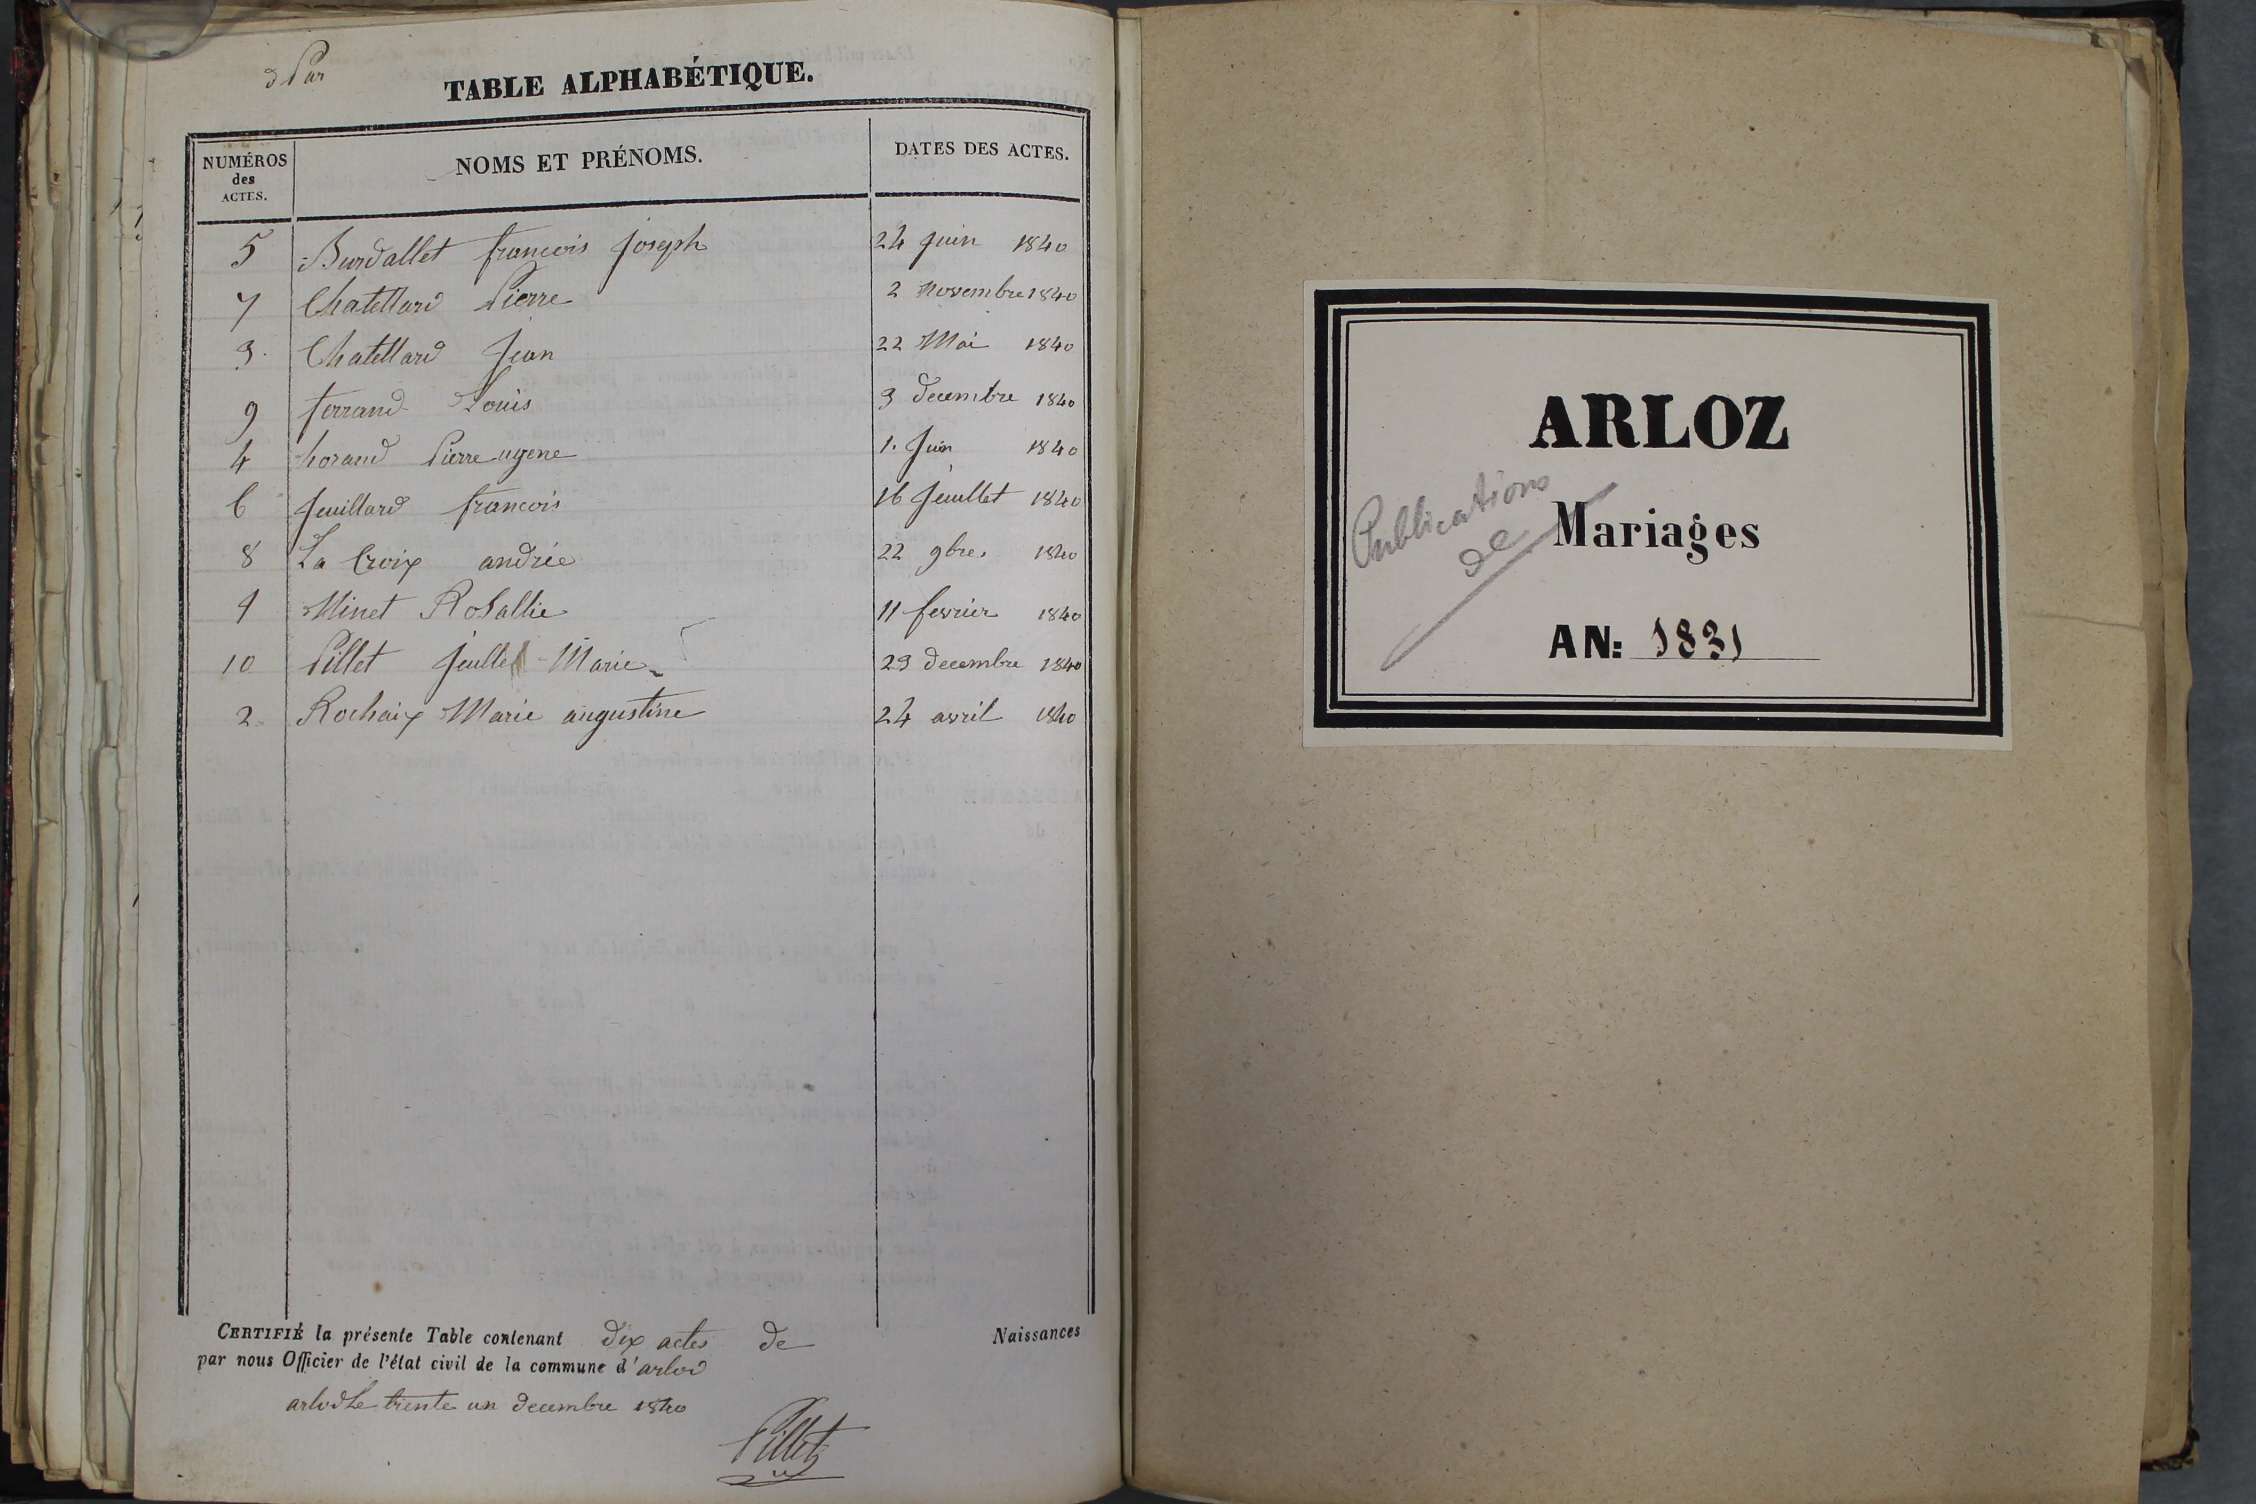 d Par
TABLE ALPHABÉTIQUE.
NUMÉROS
des
ACTES.
NOMS ET PRÉNOMS.
DATES DES ACTES.
5 Burdallet francois joseph 24 juin 1840
7 Chatellard Pierre 2 Novembre 1840
3 Chatellard Jean 22 Mai 1840
9 ferrand Louis 3 decembre 1840
4 horand Pierre ugene 1. Juin 1840
6 Jeuillard francois 16 Jeuillet 1840
8 La Croix andrée 22 9bre 1840
1 Minet Rosallie 11 fevrier 1840
10 Pillet Jeulle Marie 29 decembre 1840
2 Rochaix Marie augustine 24 avril 1840
CERTIFIÉ la présente Table contenant dix actes de Naissances
par nous Officier de l'état civil de la commune d'arlod
arlod Le trente un decembre 1840
Pillet
ARLOZ
Publications
de Mariages
AN: 1831